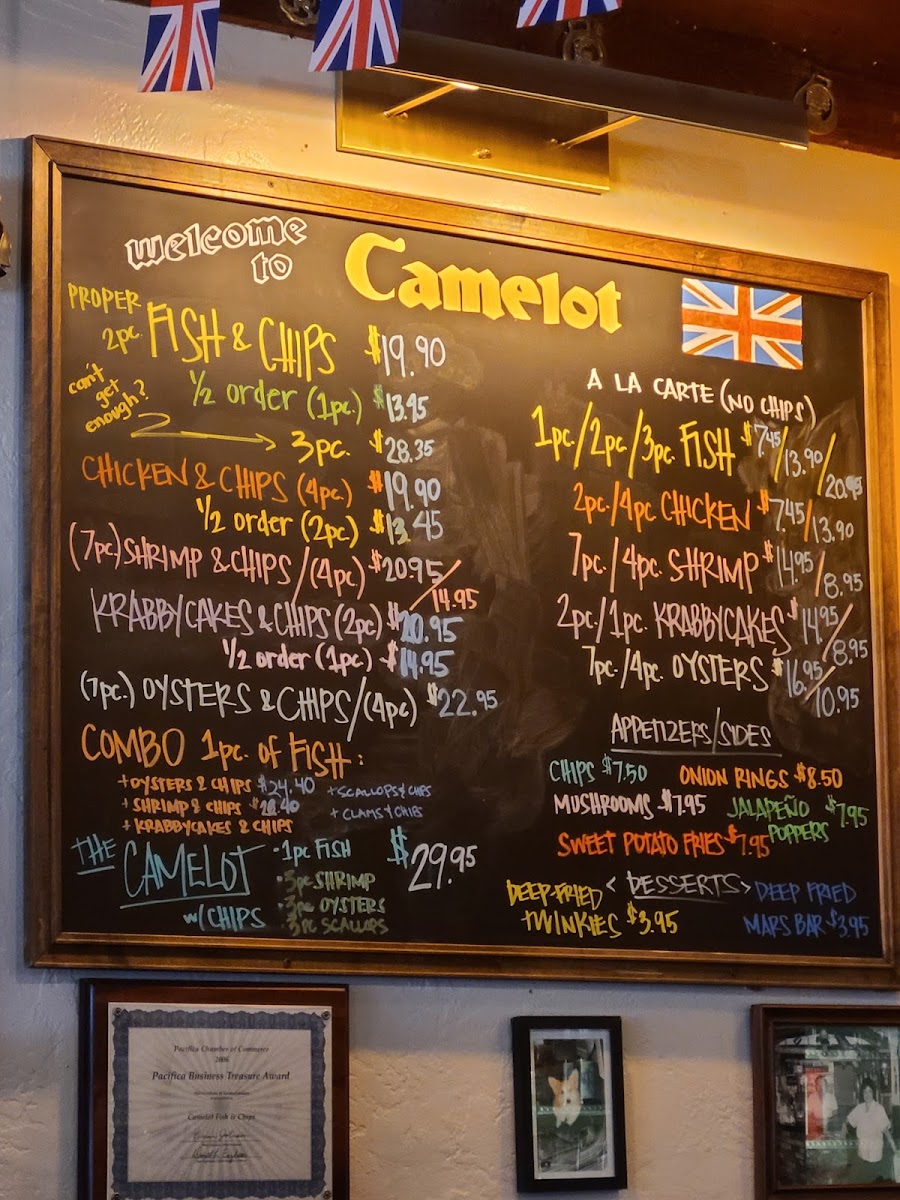 welcome
to
Camelot
PROPER
2pc. FISH & CHIPS $19.90
1/2 order (1pc.) $13.45
can't
get
enough?
3pc. $28.35
CHICKEN & CHIPS (4pc.) $19.90
1/2 order (2pc.) $13.45
(7pc.) SHRIMP & CHIPS/(4pc) $20.95/14.95
KRABBYCAKES & CHIPS (2pc) $20.95
1/2 order (1pc.) $14.95
(7pc.) OYSTERS & CHIPS/(4pc) $22.95
COMBO 1pc. of FISH:
+ OYSTERS & CHIPS $24.40
+ SHRIMP & CHIPS
+ KRABBYCAKES & CHIPS
+ SCALLOPS & CHIPS
+ CLAMS & CHIPS
THE CAMELOT
w/ CHIPS
• 1pc FISH
• 3pc SHRIMP
• 3pc OYSTERS
• 3pc SCALLOPS
$29.95
A LA CARTE (NO CHIPS)
1pc./2pc./3pc. FISH $7.45/13.90/20.95
2pc./4pc. CHICKEN $7.45/13.90
7pc./4pc. SHRIMP $14.95/8.95
2pc./1pc. KRABBYCAKES $14.95/8.95
7pc./4pc. OYSTERS $16.95/10.95
APPETIZERS/SIDES
CHIPS $7.50
ONION RINGS $8.50
MUSHROOMS $7.95
JALAPEÑO
POPPERS $7.95
SWEET POTATO FRIES $7.95
< DESSERTS >
DEEP-FRIED
TWINKIES $3.95
DEEP FRIED
MARS BAR $3.95
Pacifica Chamber of Commerce
2006
Pacifica Business Treasure Award
Camelot Fish & Chips